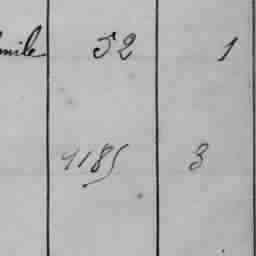 mile 52 1
1185 3